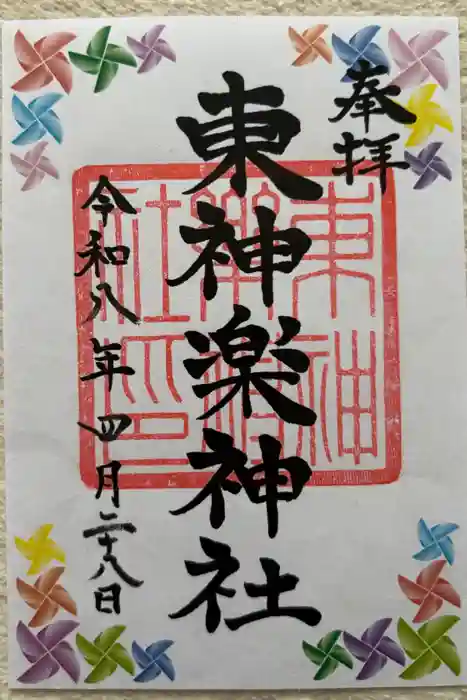 奉拝
東神楽神社
令和八年四月二十八日
東神
樂神
社印